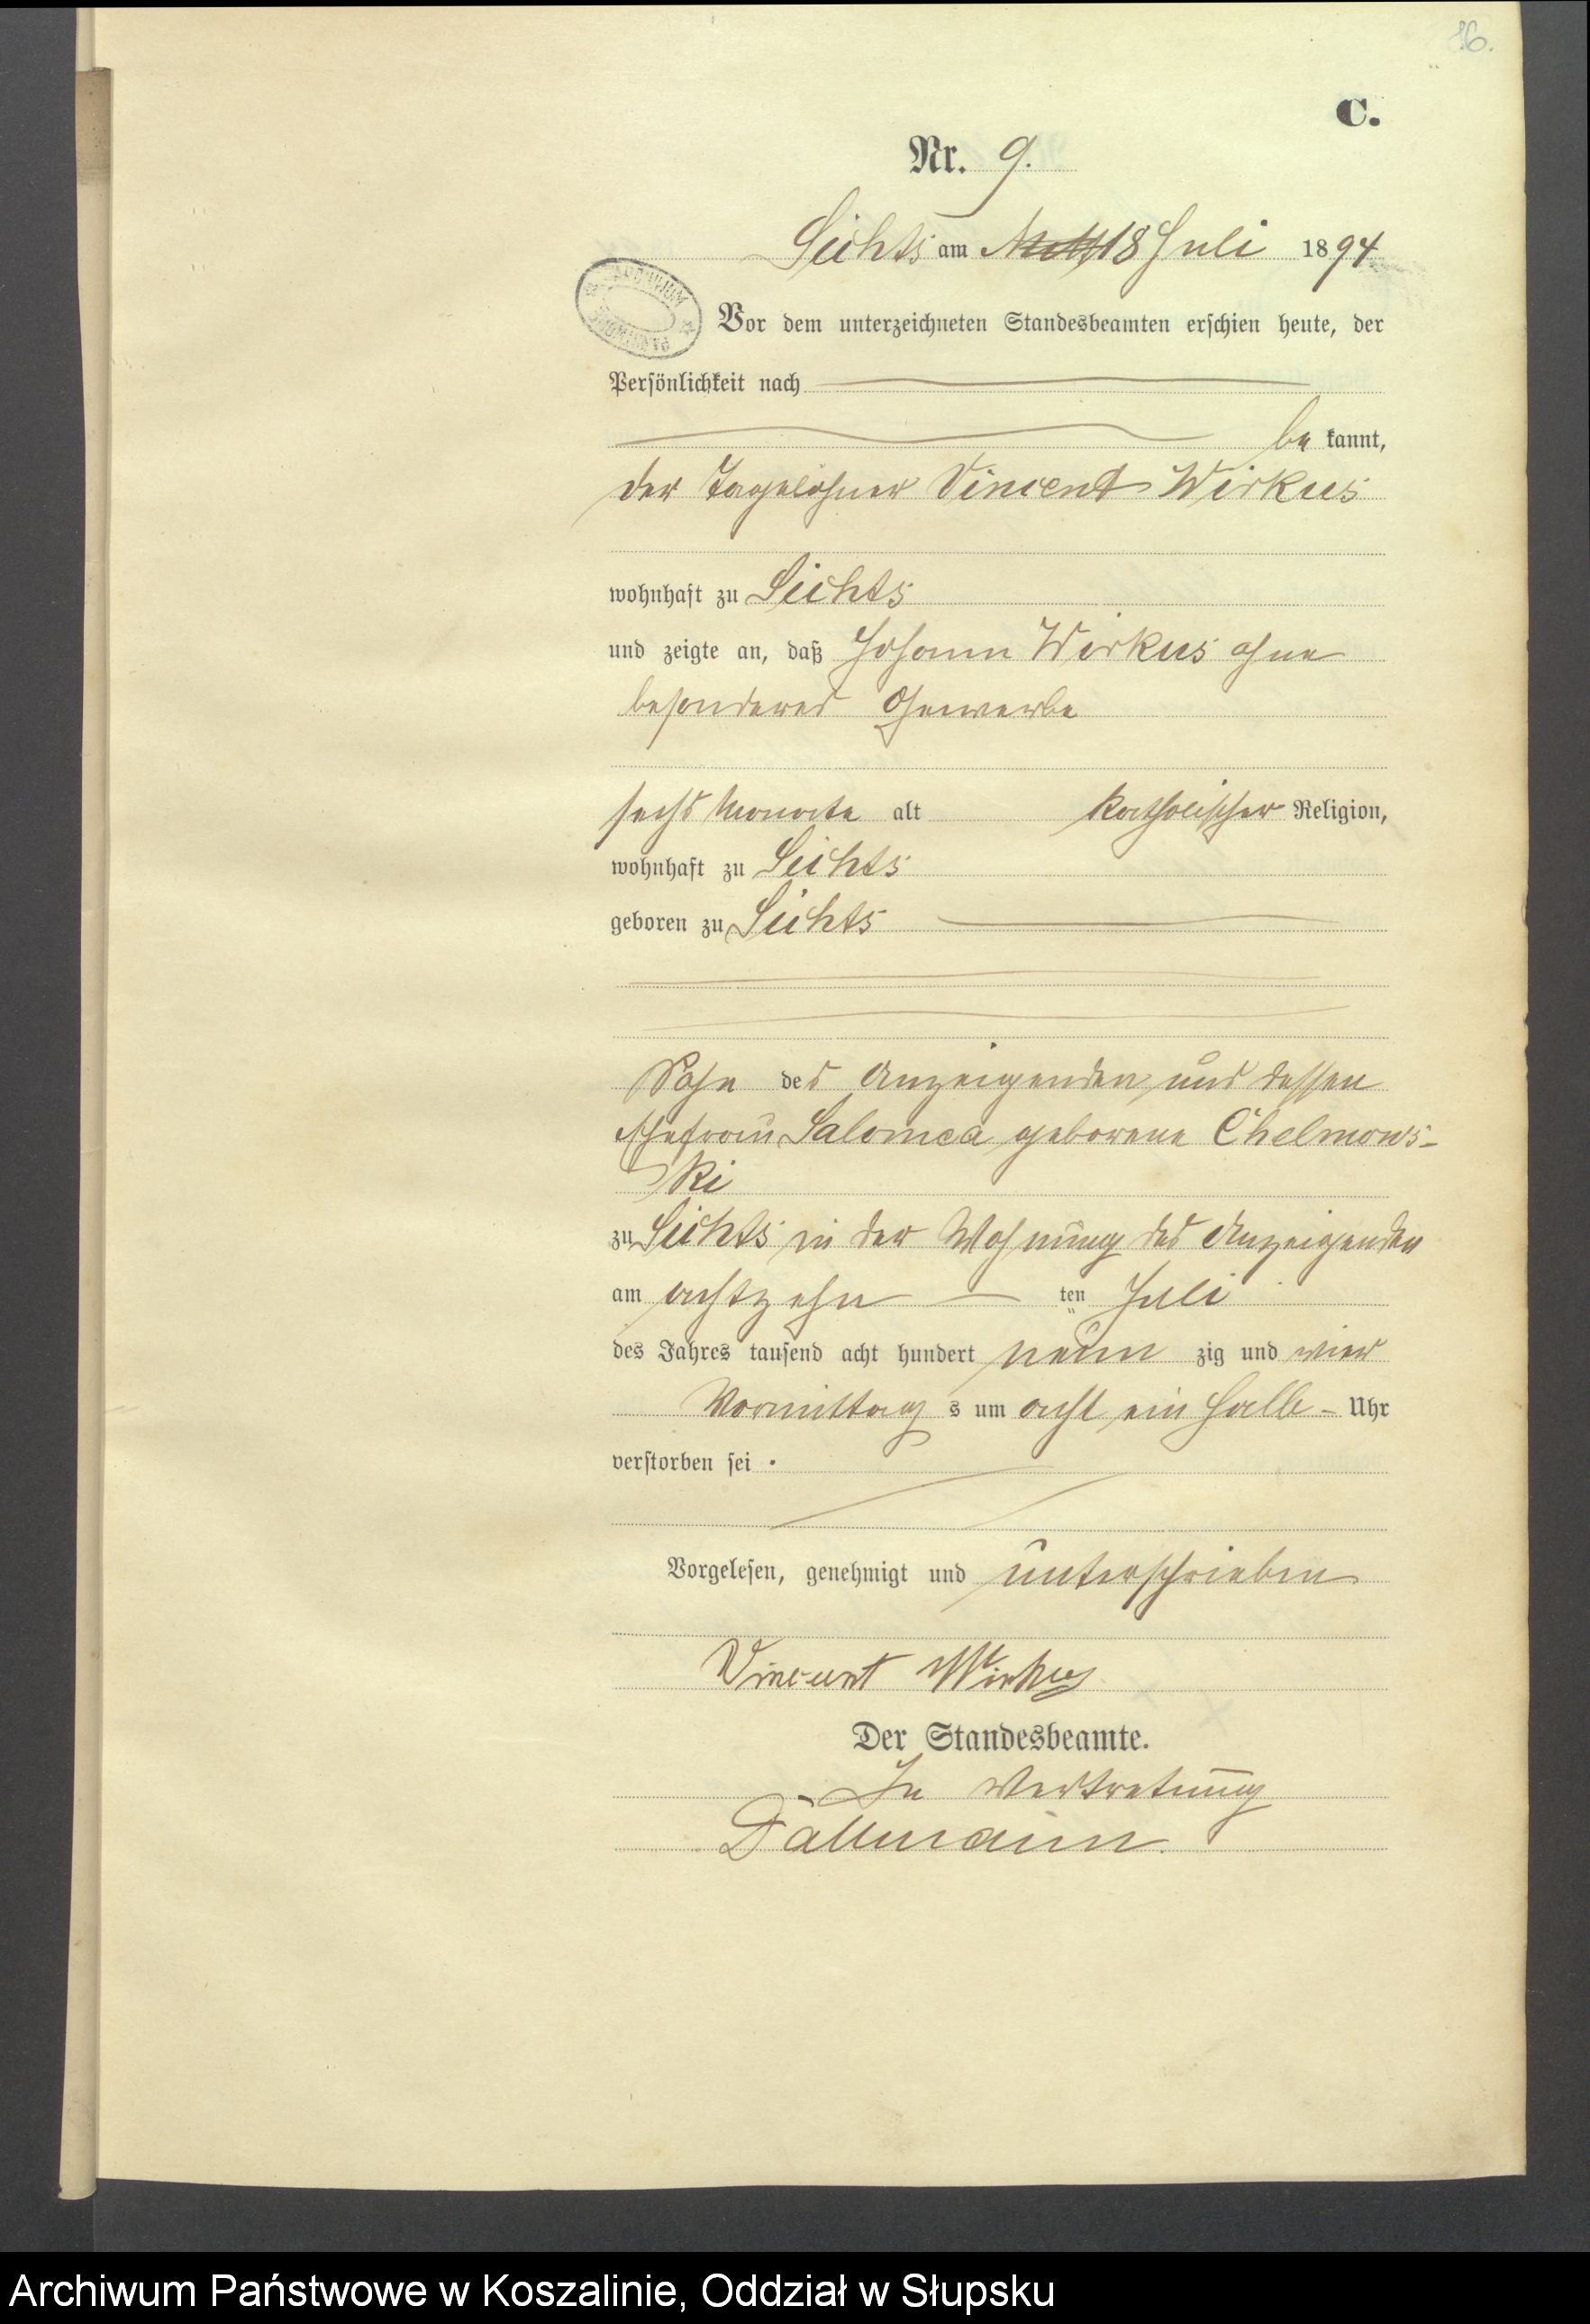 16.
C.
Nr. 9.
Lichts am 18 Juli 1894
Vor dem unterzeichneten Standesbeamten erschien heute, der
Persönlichkeit nach
be kannt,
der Tagelöhner Vincent Wirkus
wohnhaft zu Lichts
und zeigte an, daß Johann Wirkus ohne
besonderes Gewerbe
sechs Monate alt katholischer Religion,
wohnhaft zu Lichts
geboren zu Lichts
Sohn des Anzeigenden und dessen
Ehefrau Salomea geborene Chelmows-
ki
zu Lichts in der Wohnung des Anzeigenden
am achtzehn ten Juli
des Jahres tausend acht hundert neun zig und vier
Vormittag s um acht ein halb Uhr
verstorben sei.
Vorgelesen, genehmigt und unterschrieben
Vincent Wirkus
Der Standesbeamte.
In Vertretung
Dallmann.
Archiwum Państwowe w Koszalinie, Oddział w Słupsku